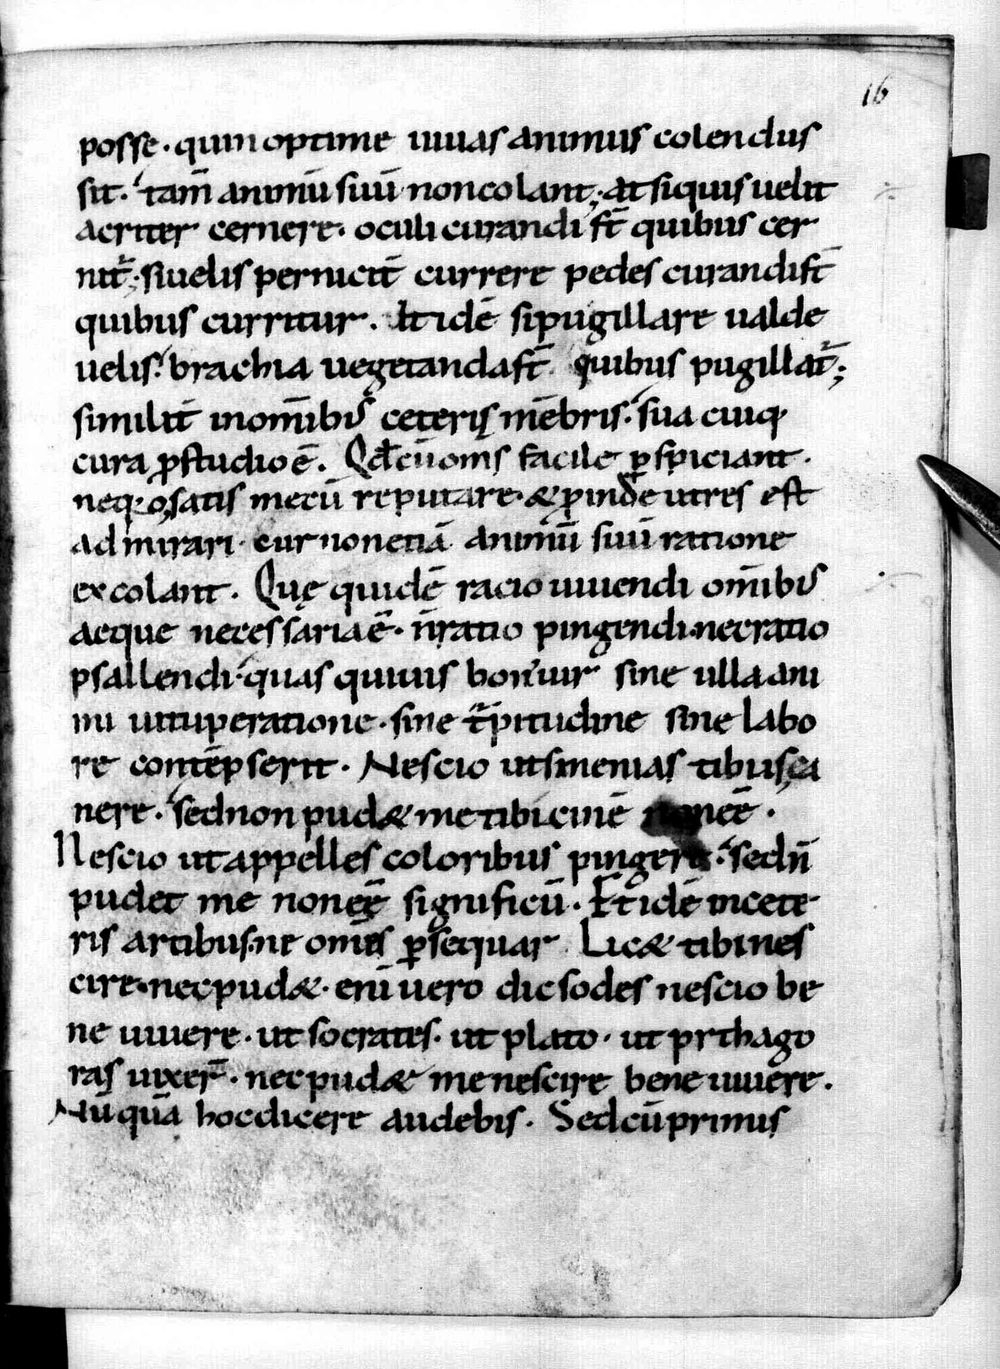 16
posse · quin optime uiuas animus colendus
sit · tam̄ animū suū non colant ; at siquis uelit
acriter cernere · oculi curandi st̄ quibus cer
nit̄ ; si uelis pernicit̄ currere pedes curandi st̄
quibus curritur . Itidē si pugillare ualde
uelis · brachia uegetanda st̄ quibus pugillat̄ ;
similit̄ in om̄ibus ceteris mēbris · sua cuiq;
cura p studio ē . Qd̄ cū om̄s facile pspiciant ·
neq; satis mecū reputare · & pinde ut res est
admirari · cur non etiā animū suū ratione
excolant . Quę quidē racio uiuendi om̄ibus
aeque necessaria ē · n̄ ratio pingendi · nec ratio
psallendi · quas quiuis bon' uir sine ulla ani
mi uituperatione · sine t̄pitudine sine labo
re contēpserit . Nescio ut smenias tibiis ca
nere · sed non pud& me tibicinē non eē ·
Nescio ut appelles coloribus pingere · sed n̄
pudet me non eē significū · Et idē in cete
ris artibus · ne om̄s psequar Lic& tibi nes
cire · nec pud& · eni uero dic sodes nescio be
ne uiuere · ut socrates · ut plato · ut prthago
ras uixer̄ · nec pud& me nescire bene uiuere .
Nūquā hoc dicere audebis . Sed cū primis